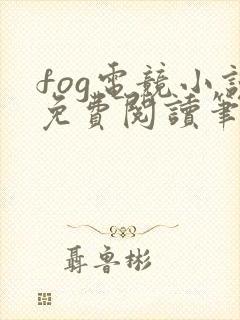 fog電競小說
免費閱讀筆
聶魯彬